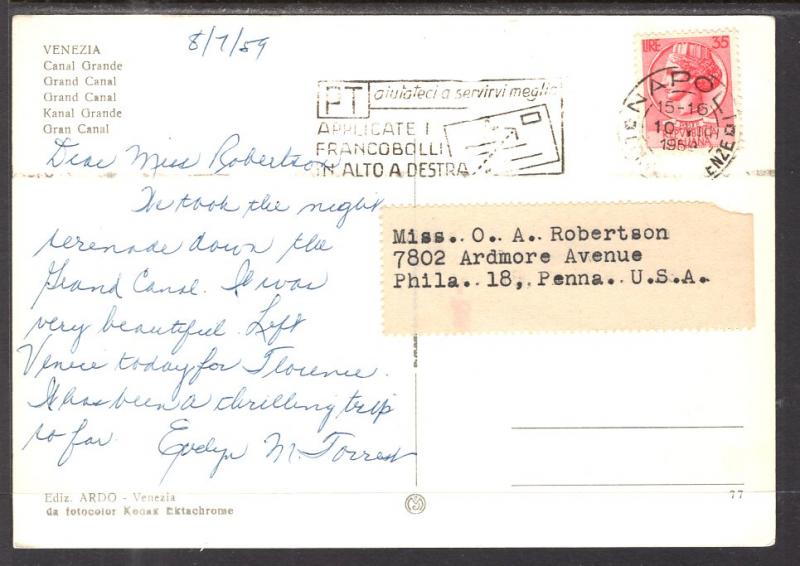 VENEZIA
Canal Grande
Grand Canal
Grand Canal
Kanal Grande
Gran Canal
8/7/59
PT aiutateci a servirvi meglio
APPLICATE I
FRANCOBOLLI
IN ALTO A DESTRA
LIRE 35
NAPOLI
15-16
10 VIII
195
REPVBBLICA
ITALIANA
Dear Miss Robertson
We took the night
serenade down the
Grand Canal. It was
very beautiful. Left
Venice today for Florence.
It has been a thrilling trip
so far. Evelyn M. Torrest
Miss. O. A. Robertson
7802 Ardmore Avenue
Phila. 18, Penna. U.S.A.
Ediz. ARDO - Venezia
da fotocolor Kodak Ektachrome
77